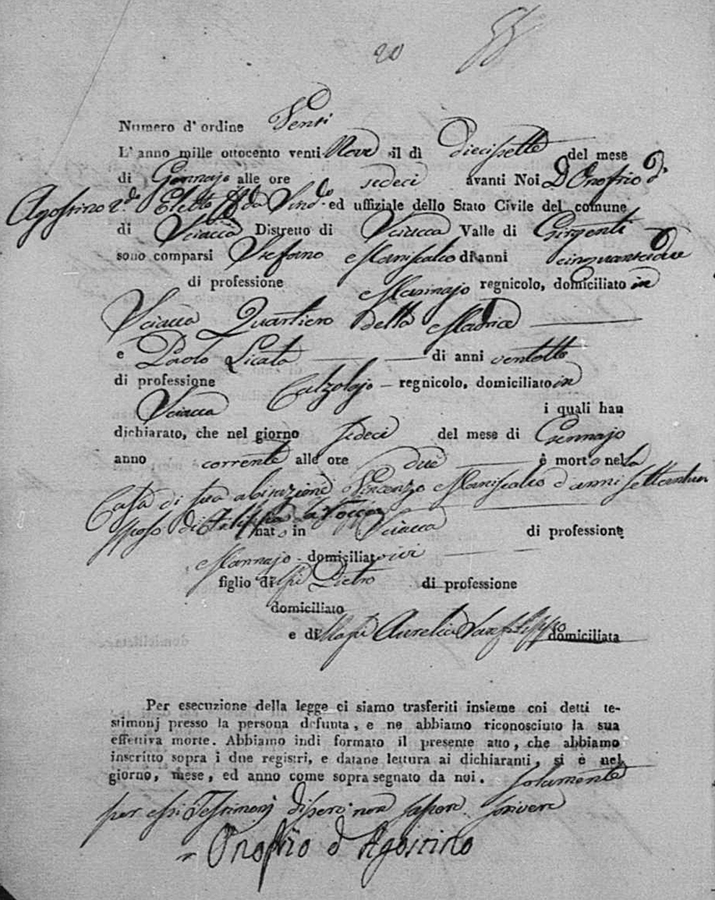 20
Numero d'ordine Venti
L'anno mille ottocento ventiNove, il dì diecisette del mese
di Gennajo alle ore sedeci avanti Noi D. Onofrio d'
Agostino 2.do Eletto ed uffiziale dello Stato Civile del comune
di Sciacca Distretto di Sciacca Valle di Girgenti
sono comparsi Stefano Maniscalco di anni cinquantadue
di professione Marinajo regnicolo, domiciliato in
Sciacca Quartiero della Madrice
e Paolo Licata di anni ventotto
di professione Calzolajo regnicolo, domiciliato in
Sciacca i quali han
dichiarato, che nel giorno sedeci del mese di Gennajo
anno corrente alle ore due è morto nella
Casa di sua abitazione Vincenzo Maniscalco d'anni settantun
sposo di Filippa La Rocca nato in Sciacca di professione
Marinajo domiciliato ivi
figlio di Pietro di professione
domiciliato
e di Aurelia Sanfilippo domiciliata
Per esecuzione della legge ci siamo trasferiti insieme coi detti te-
stimonj presso la persona defunta, e ne abbiamo riconosciuto la sua
effettiva morte. Abbiamo indi formato il presente atto, che abbiamo
inscritto sopra i due registri, e datane lettura ai dichiaranti, si è nel
giorno, mese, ed anno come sopra segnato da noi. solamente
per essi Testimonj dissero non saper scrivere
Onofrio d'Agostino